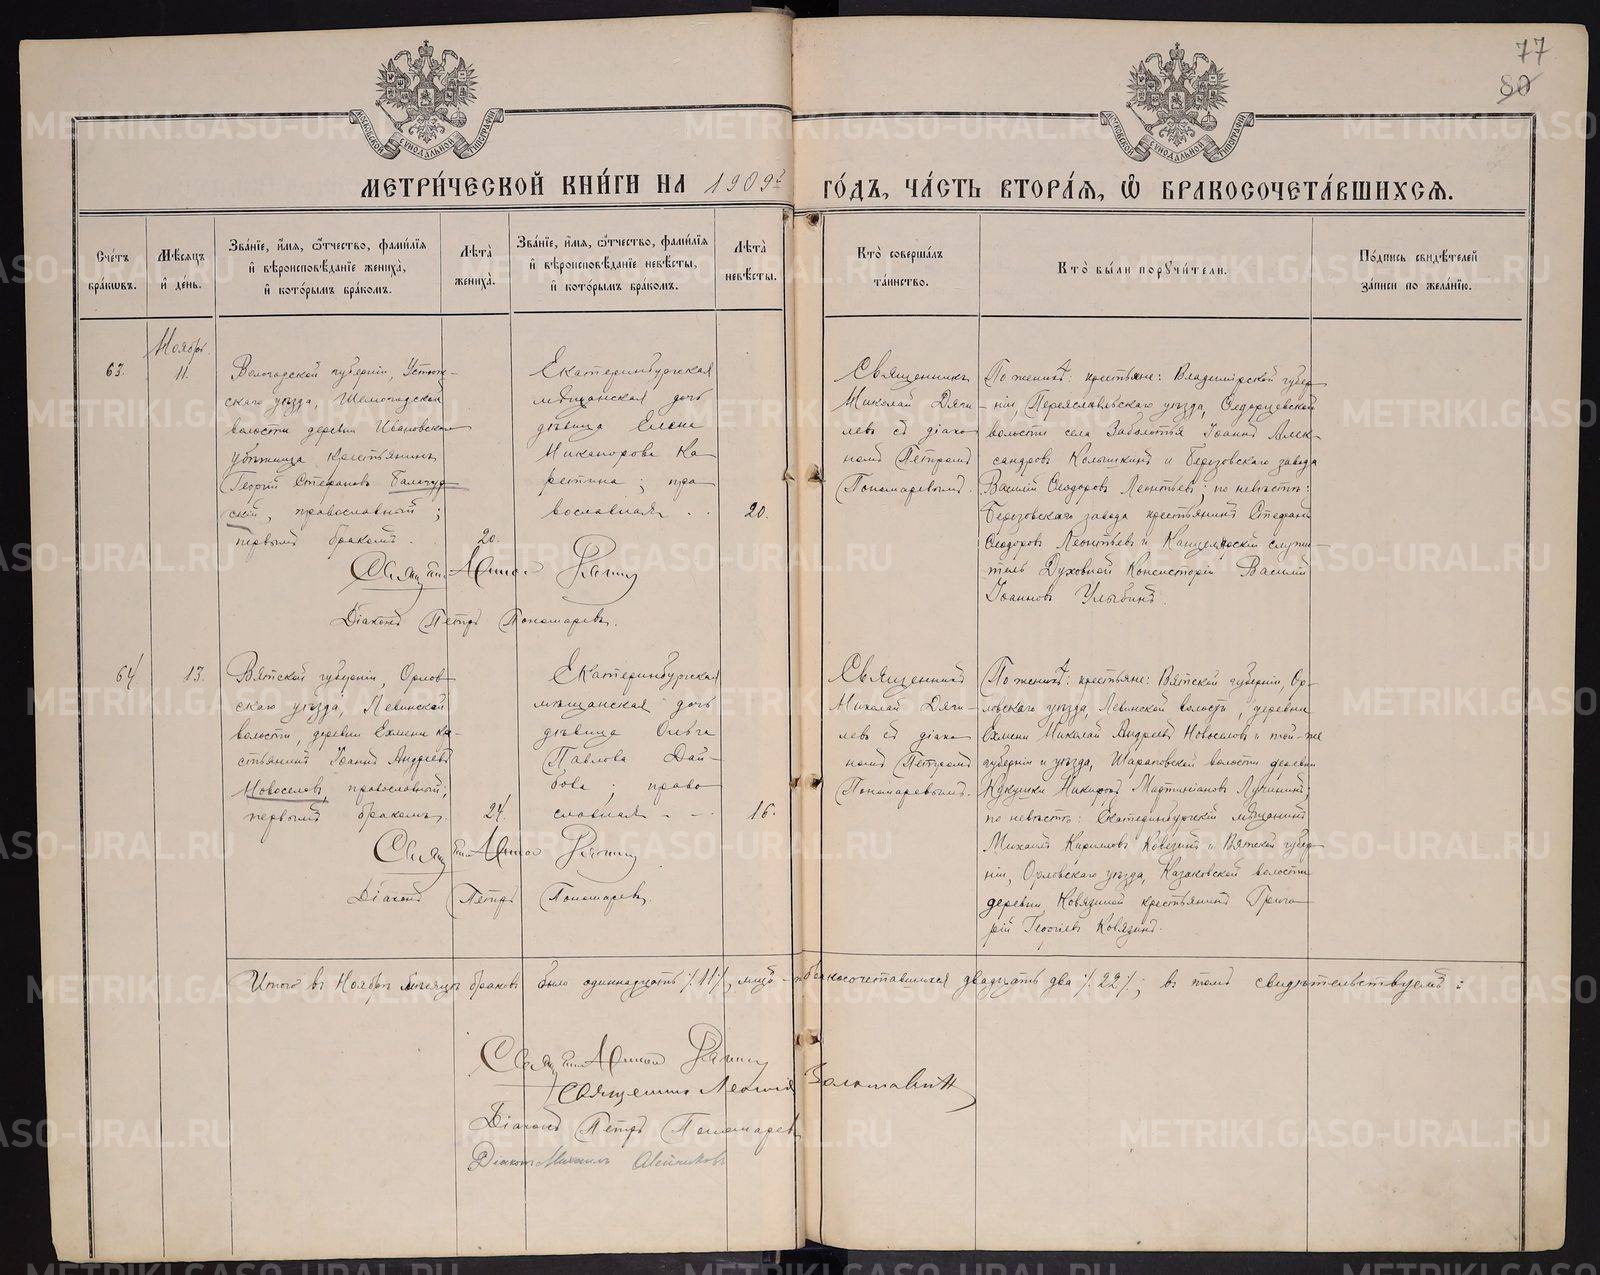 77
80
МОСКОВСКОЙ СѴНОДАЛЬНОЙ ТИПОГРАФІИ
МОСКОВСКОЙ СѴНОДАЛЬНОЙ ТИПОГРАФІИ
МЕТРИ́ЧЕСКОЙ КНИ́ГИ НА 1909й ГО́ДЪ, ЧА́СТЬ ВТОРА́Ѧ, Ѽ БРАКОСОЧЕТА́ВШИХСѦ.
Сче́тъ бра́кѡвъ.
Мѣ́сяцъ и́ де́нь.
Зва́нїе, и́мѧ, ѻ҆́тчество, фами́лїѧ и҆ вѣроисповѣ́данїе жениха̀, и҆ кото́рымъ бра́комъ.
Лѣ́та жениха̀.
Зва́нїе, и́мѧ, ѻ҆́тчество, фами́лїѧ и҆ вѣроисповѣ́данїе невѣ́сты, и҆ кото́рымъ бра́комъ.
Лѣ́та невѣ́сты.
Кто̀ соверша́лъ та́инство.
Кто̀ бы́ли порꙋчи́тели.
По́дпись свидѣ́телей за́писи по жела́нїю.
Ноябрь.
63.
11.
Вологодской губерніи, Устюж-
скаго уѣзда, Шемогодской
волости деревни Ивановской
крестьянинъ
Георгій Стефановъ Балагур-
скій, православный;
первымъ бракомъ.
20.
Екатеринбургская
мѣщанская дочь
дѣвица Елена
Никанорова Ка-
ретина; пра
вославная . .
20.
Священникъ
Николай Дяги-
левъ съ діако
номъ Петромъ
Пономаревымъ.
По женихѣ: крестьяне: Владимірской губер
ніи, Переяславльскаго уѣзда, Ѳедорцевской
волости села Заболотья Іоаннъ Алек-
сандровъ Колышкинъ и Березовскаго завода
Василій Ѳеодоровъ Леонтьевъ; по невѣстѣ:
Березовскаго завода крестьянинъ Стефанъ
Ѳеодоровъ Леонтьевъ и Канцелярскій служи-
тель Духовной Консисторіи Василій
Іоанновъ Улыбинъ.
Діаконъ Петръ Пономаревъ.
64
13.
Вятской губерніи, Орлов
скаго уѣзда, Левинской
волости, деревни Ехмени кре-
стьянинъ Іоаннъ Андреевъ
Новоселовъ, православный;
первымъ бракомъ.
24.
Екатеринбургская
мѣщанская дочь
дѣвица Ольга
Павлова Дай-
бова; право
славная - -
16.
Священникъ
Николай Дяги-
левъ съ діако
номъ Петромъ
Пономаревымъ.
По женихѣ: крестьяне: Вятской губерніи, Ор-
ловскаго уѣзда, Левинской волости, деревни
Ехмени Николай Андреевъ Новоселовъ и той-же
губерніи и уѣзда, Шараповской волости деревни
Кукушки Никифоръ Мартиніановъ Лучининъ;
по невѣстѣ: Екатеринбургскій мѣщанинъ
Михаилъ Кириловъ Ковезинъ и Вятской губер
ніи, Орловскаго уѣзда, Казаковской волости
деревни Ковязиной крестьянинъ Григо
рій Георгіевъ Ковязинъ.
Діаконъ Петръ Пономаревъ.
Итого въ Ноябрѣ мѣсяцѣ браковъ было одиннадцать /11/, лицъ бракосочетавшихся двадцать два /22/; въ томъ свидѣтельствуемъ:
Священникъ
Діаконъ Петръ Пономаревъ
Діаконъ Михаилъ
METRIKI.GASO-URAL.RU